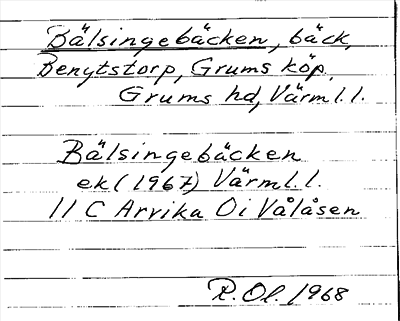 Bälsingebäcken, bäck,
Benytstorp, Grums köp.
Grums hd, Värml. l.
Bälsingebäcken
ek (1967) Värml. l.
11 C Arvika Oi Vålåsen
R. Ol. 1968